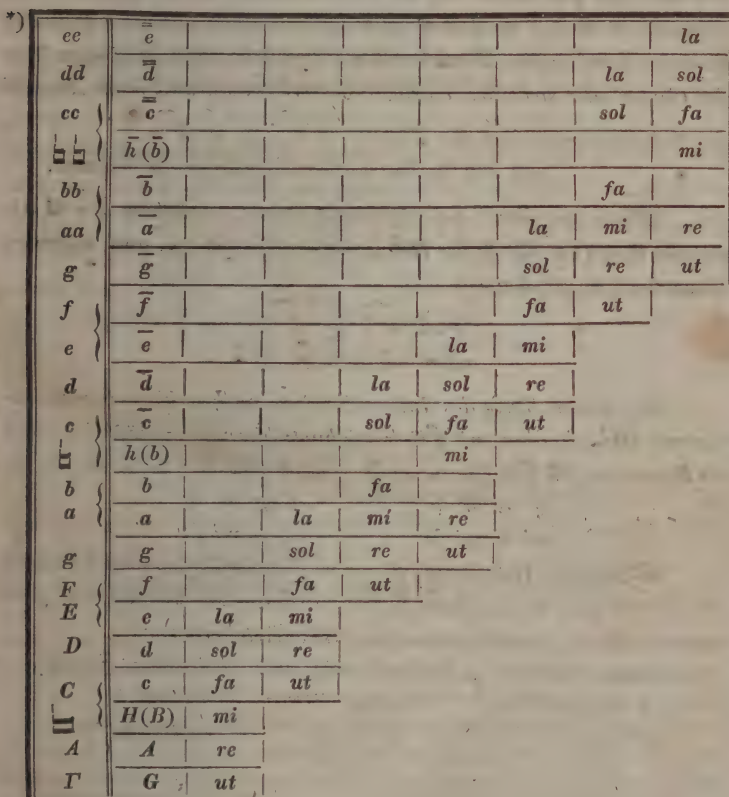 *)
ee e̿ la
dd d̿ la sol
cc c̿ sol fa
♮♮ h̄ (b̄) mi
bb b̄ fa
aa ā la mi re
g ḡ sol re ut
f f̄ fa ut
e ē la mi
d d̄ la sol re
c c̄ sol fa ut
♮ h (b) mi
b b fa
a a la mi re
g g sol re ut
F f fa ut
E e la mi
D d sol re
C c fa ut
♮ H (B) mi
A A re
Γ G ut